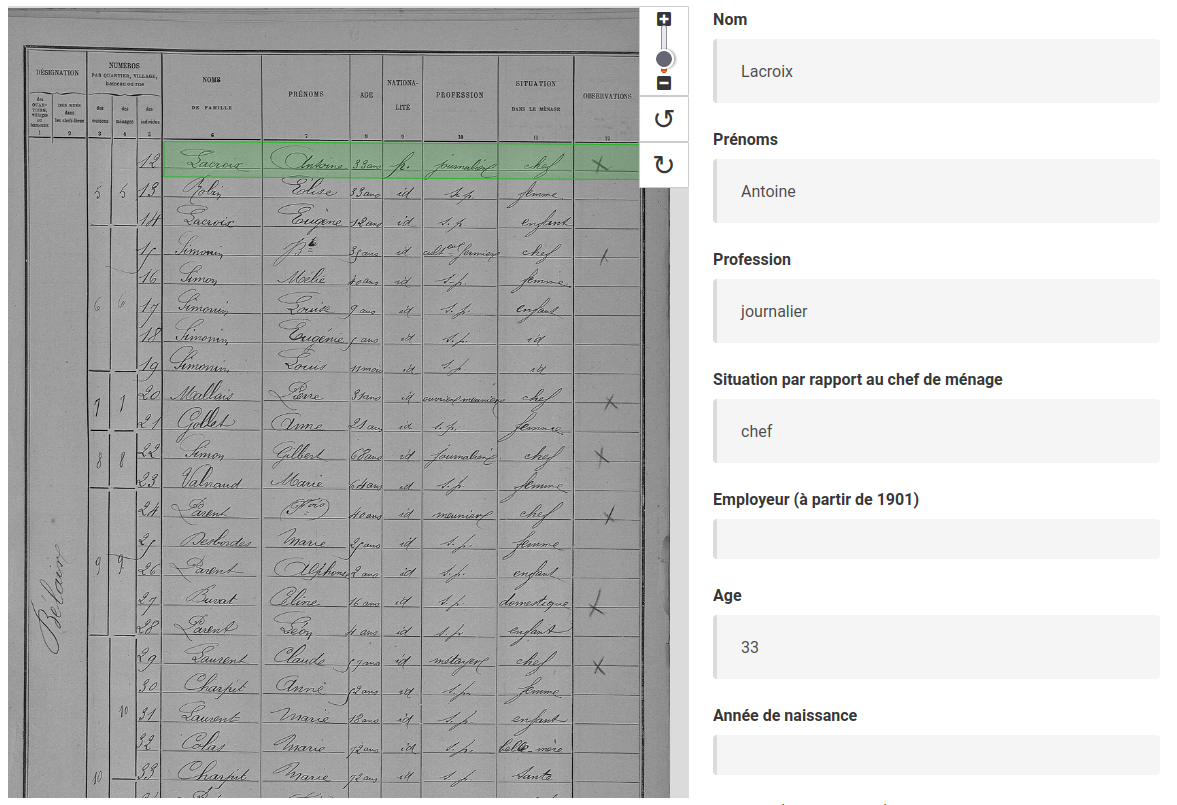 DÉSIGNATION
NUMÉROS
PAR QUARTIER, VILLAGE,
hameau ou rue
NOMS
DE FAMILLE
PRÉNOMS
AGE
NATIONA-
LITÉ
PROFESSION
SITUATION
DANS LE MÉNAGE
OBSERVATIONS
des maisons
des ménages
des individus
1 2 3 4 5 6 7 8 9 10 11 12
12 Lacroix Antoine 33 ans f. journalier chef X
5 5 13 Robin Élise 33 ans id s.p. femme
14 Lacroix Eugène 12 ans id s.p. enfant
15 Simonin Bte 35 ans id chef X
16 Simon Mélie 40 ans id s.p. femme
6 6 17 Simonin Louise 9 ans id s.p. enfant
18 Simonin Eugénie ans id s.p. id
19 Simonin Louis 11 mois id s.p. id
7 7 20 Maillais Pierre 31 ans id ouvrier meunier chef X
21 Gollet Anne 21 ans id s.p. femme
8 8 22 Simon Gilbert 68 ans id journalier chef X
23 Valnaud Marie 64 ans id s.p. femme
24 Parent Fois 40 ans id meunier chef X
25 Desbordes Marie 25 ans id s.p. femme
9 9 26 Parent Alphonse 2 ans id s.p. enfant
27 Buvat Céline 16 ans id s.p. domestique X
28 Parent Léon 4 ans id s.p. enfant
29 Laurent Claude 57 ans id métayer chef X
30 Charpit Anne 52 ans id s.p. femme
10 31 Laurent Marie 18 ans id s.p. enfant
32 Colas Marie 72 ans id s.p. belle-mère
10 33 Charpit Marie 72 ans id s.p. tante
Bélair
Nom
Lacroix
Prénoms
Antoine
Profession
journalier
Situation par rapport au chef de ménage
chef
Employeur (à partir de 1901)
Age
33
Année de naissance